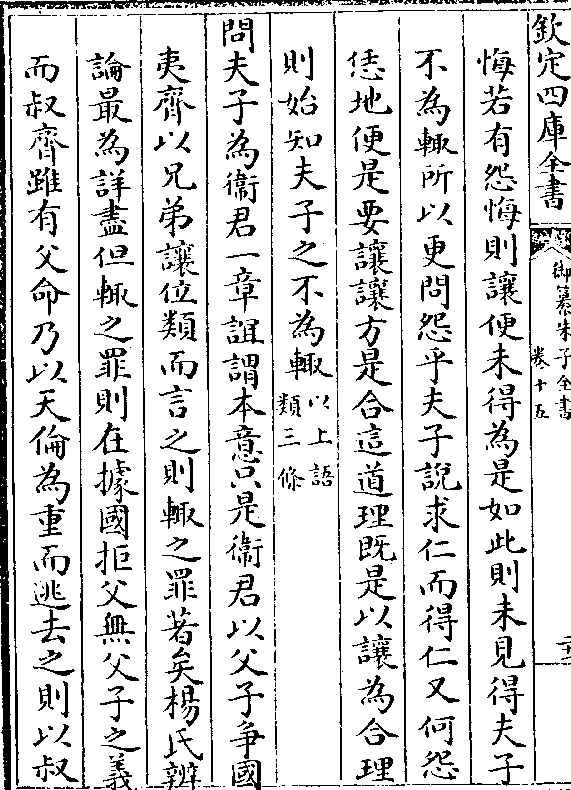 欽定四庫全書
御纂朱子全書
卷十五
二十二
悔若有怨悔則讓便未得為是如此則未見得夫子
不為輙所以更問怨乎夫子說求仁而得仁又何怨
恁地便是要讓讓方是合這道理既是以讓為合理
則始知夫子之不為輙以上語
類三條
問夫子為衞君一章誼謂本意只是衞君以父子争國
夷齊以兄弟讓位類而言之則輙之罪著矣楊氏辨
論最為詳盡但輙之罪則在據國拒父無父子之義
而叔齊雖有父命乃以天倫為重而逃去之則以叔